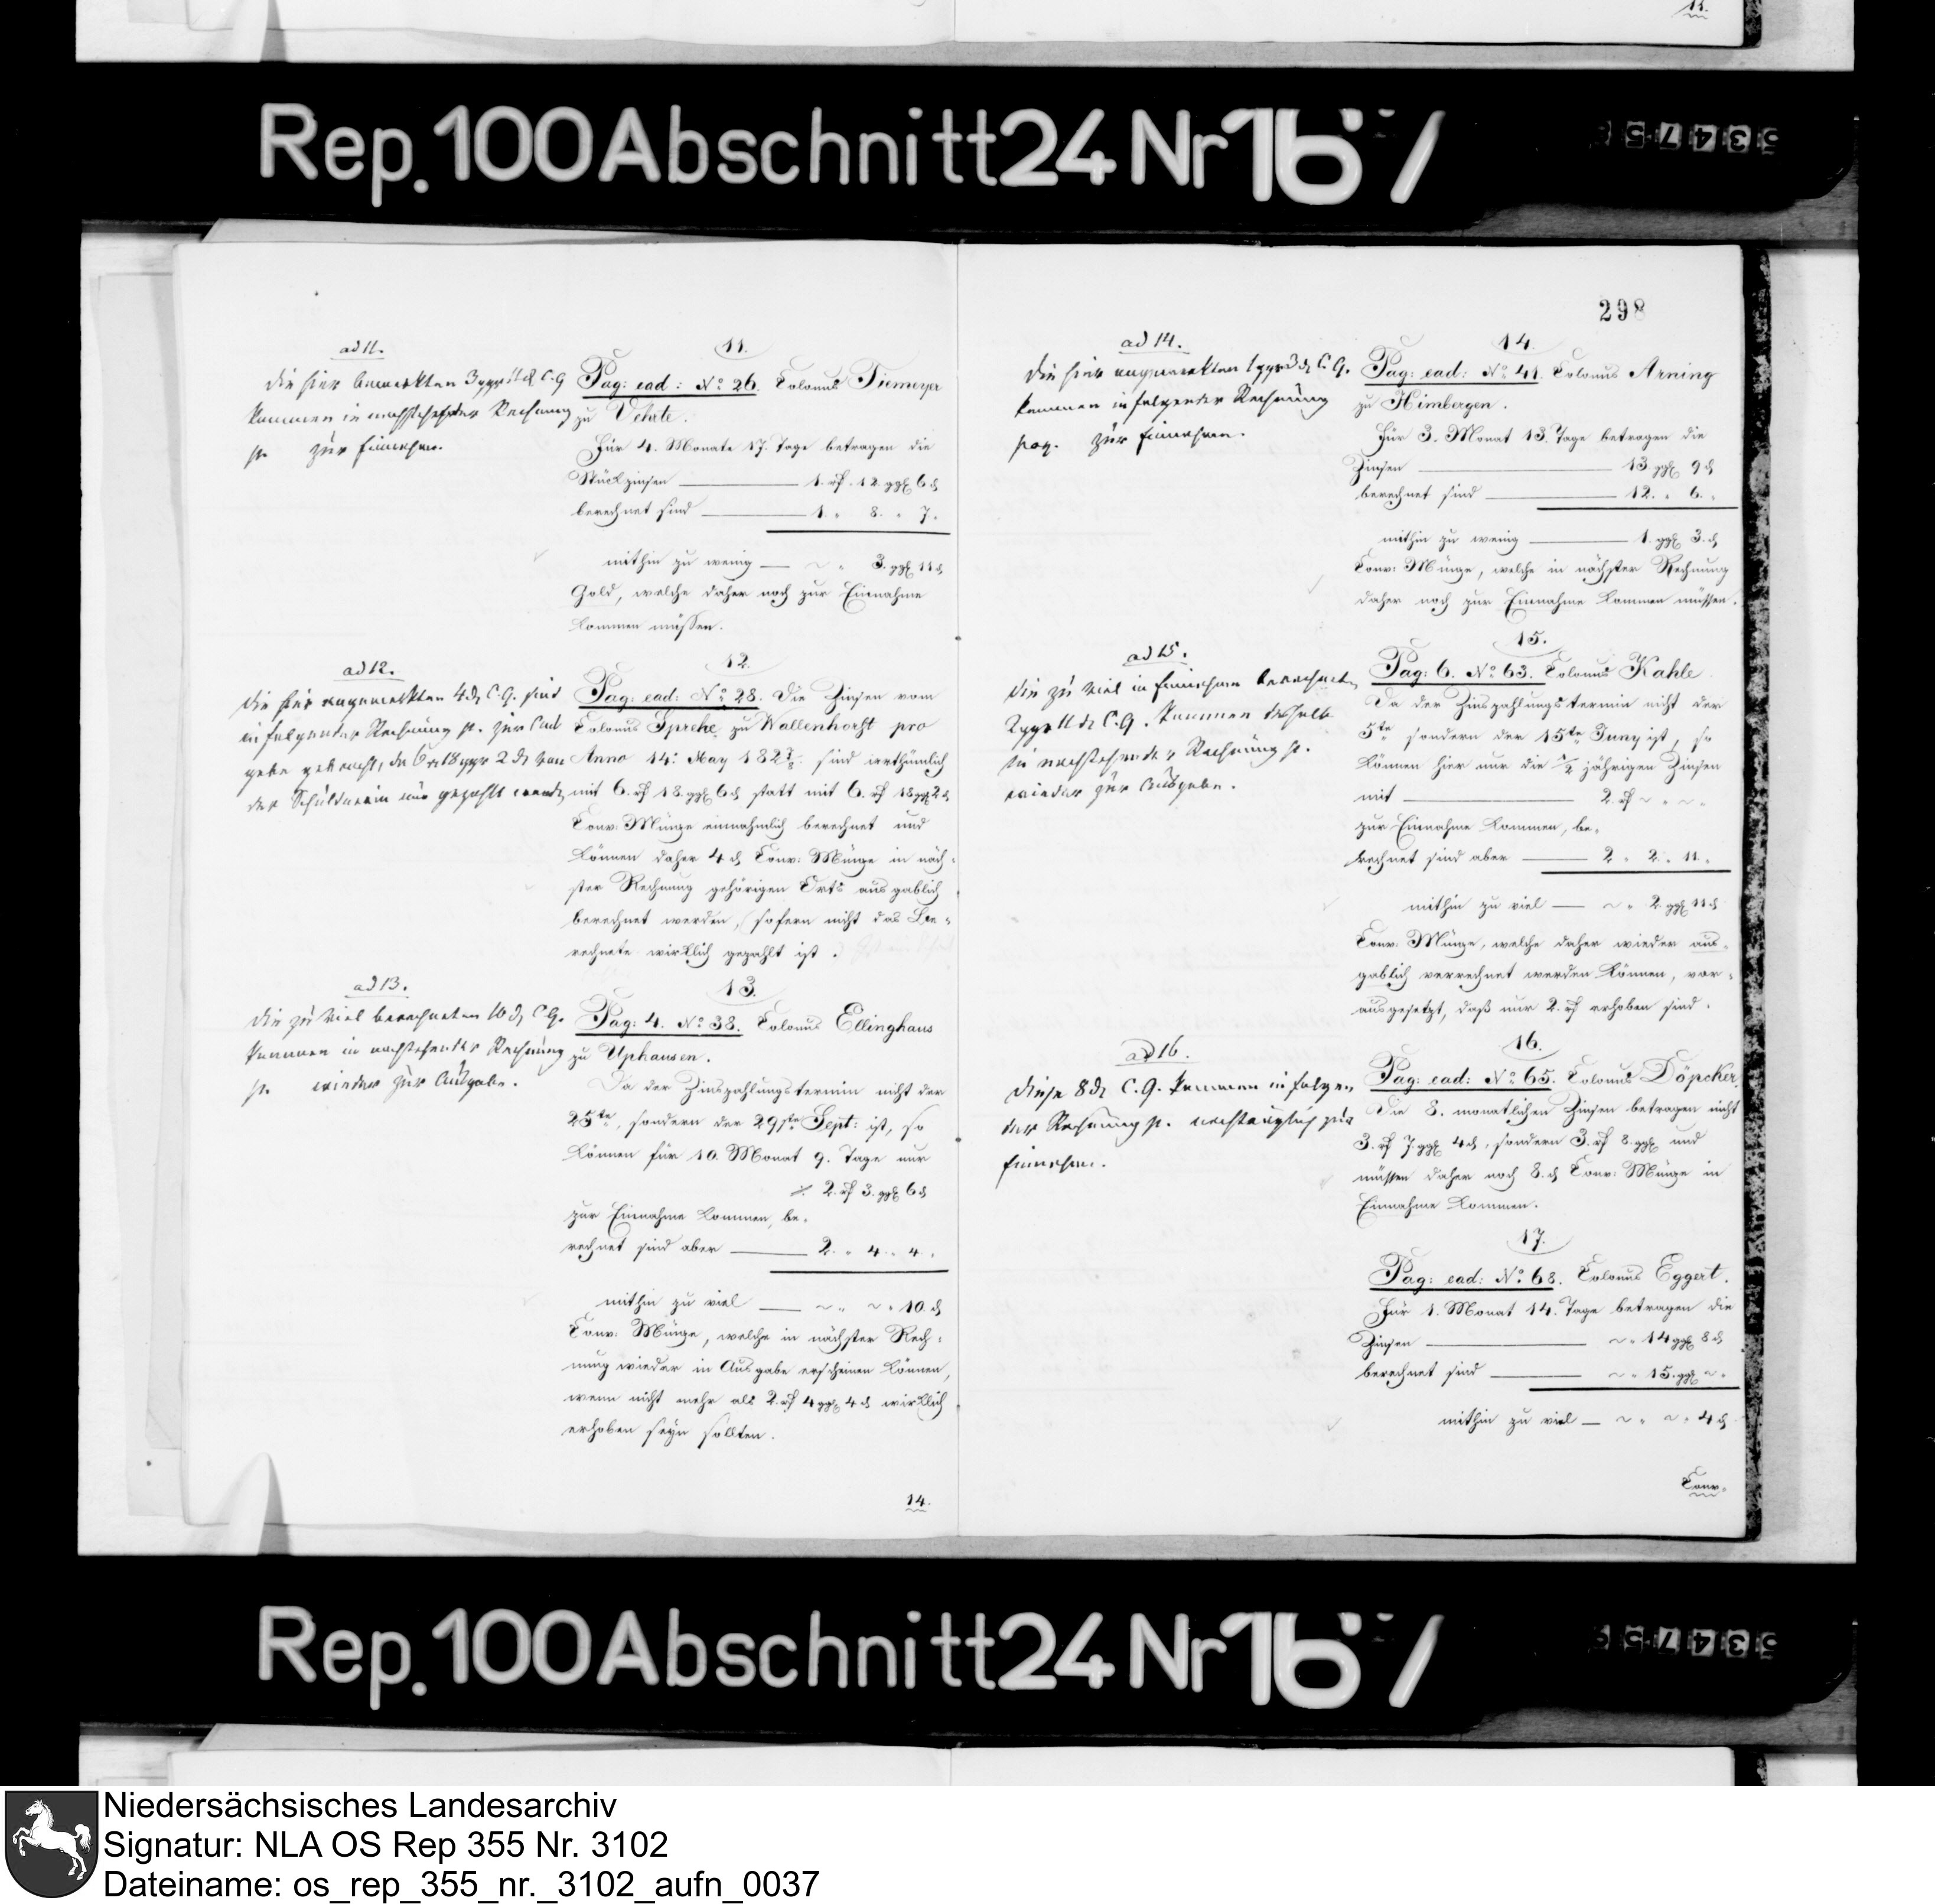 15.
Rep. 100 Abschnitt 24 Nr 167
53475
ad 11.
Die hier bemerkten 3 ggr 11 d C.G
kommen in nachstehender Rechnung
p. zur Einnahme.
11.
Pag: ead: No 26. Colonus Tiemeyer
zu Vehrte.
Für 4. Monate 17. Tage betragen die
Stückzinsen — 1. rf. 12. ggl 6 d
berechnet sind — 1. " 8. " 7. "
mithin zu wenig — ~ " 3. ggl 11 d
Gold, welche daher noch zur Einnahme
kommen müssen.
ad 12.
Die hier angemerkten 4 d C.G. sind
in folgender Rechnung p. zur Aus
gabe gebracht, da 6 r 18 ggr 2 d von
der Schuldnerin nur gezahlt werden
12.
Pag: ead: No 28. Die Zinsen vom
Colonus Sprehe zu Wallenhorst pro
Anno 14: May 182 7/8 sind irrthümlich
mit 6. rf 18. ggl 6 d statt mit 6. rf 18 ggl 2 d
Conv: Münze einnahmlich berechnet und
können daher 4 d Conv: Münze in näch-
ster Rechnung gehörigen Orts ausgablich
berechnet werden, (sofern nicht das Be-
rechnete wirklich gezahlt ist.)
ad 13.
Die zu viel berechneten 10 d C.G.
kommen in nachstehender Rechnung
p. wieder zur Ausgabe.
13.
Pag: 4. No 38. Colonus Ellinghaus
zu Uphausen.
Da der Zinszahlungstermin nicht der
25te, sondern der 29ste Sept: ist, so
können für 10. Monat 9. Tage nur
2. rf 3. ggl 6 d
zur Einnahme kommen, be-
rechnet sind aber — 2. " 4. " 4. "
mithin zu viel — ~ " ~ " 10. d
Conv: Münze, welche in nächster Rech-
nung wieder in Ausgabe erscheinen können,
wenn nicht mehr als 2. rf 4 ggl 4 d wirklich
erhoben seyn sollten.
14.
298
ad 14.
Die hier angemerkten 1 ggr 3 d C.G.
kommen in folgender Rechnung
pag. zur Einnahme.
14.
Pag: ead: No 41. Colonus Arning
zu Himbergen.
Für 3. Monat 13. Tage betragen die
Zinsen — 13 ggl 9 d
berechnet sind — 12. " 6. "
mithin zu wenig — 1. ggl 3. d
Conv: Münze, welche in nächster Rechnung
daher noch zur Einnahme kommen müssen.
ad 15.
Die zu viel in Einnahme berechneten
2 ggr 11 d C.G. kommen deshalb
in nachstehender Rechnung p.
wieder zur Ausgabe.
15.
Pag: 6. No 63. Colonus Kahle.
Da der Zinszahlungstermin nicht der
5te sondern der 15te Juny ist, so
können hier nur die 1/2 jährigen Zinsen
mit — 2. rf ~ " ~ "
zur Einnahme kommen, be-
rechnet sind aber — 2 " 2. " 11. "
mithin zu viel — ~ " 2. ggl 11 d
Conv: Münze, welche daher wieder aus-
gablich verrechnet werden können, vor-
ausgesetzt, daß nur 2. rf erhoben sind.
ad 16.
Diese 8 d C.G. kommen in folgen
der Rechnung p. nachträglich zur
Einnahme.
16.
Pag: ead: No 65. Colonus Döpcker.
Die 8. monatlichen Zinsen betragen nicht
3. rf 7 ggl 4 d, sondern 3. rf 8. ggl und
müssen daher noch 8. d Conv: Münze in
Einnahme kommen.
17.
Pag: ead: No 68. Colonus Eggert.
Für 1. Monat 14. Tage betragen die
Zinsen — ~ " 14 ggl 8 d
berechnet sind — ~ " 15. ggl ~ "
mithin zu viel — ~ " ~ " 4 d
Conv:
Rep. 100 Abschnitt 24 Nr 167
53475
Niedersächsisches Landesarchiv
Signatur: NLA OS Rep 355 Nr. 3102
Dateiname: os_rep_355_nr._3102_aufn_0037